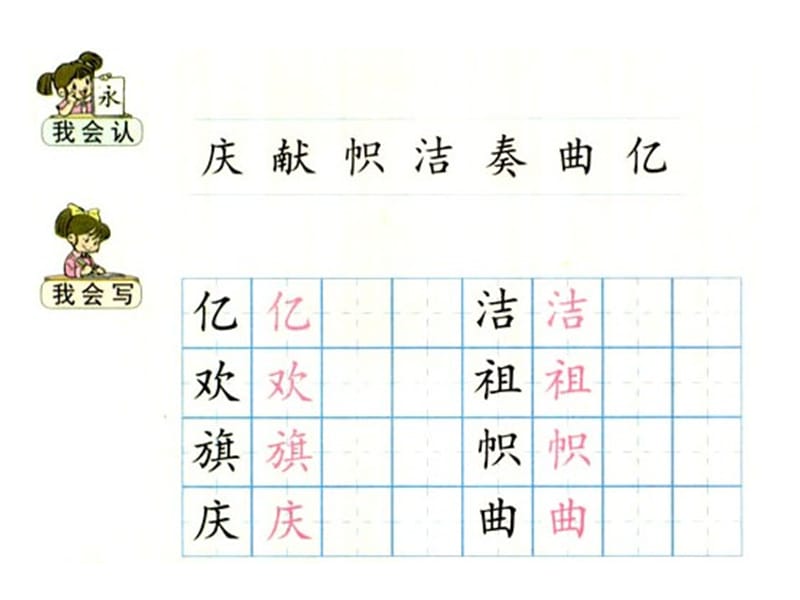 永
我会认
庆 献 帜 洁 奏 曲 亿
我会写
亿 亿 洁 洁
欢 欢 祖 祖
旗 旗 帜 帜
庆 庆 曲 曲